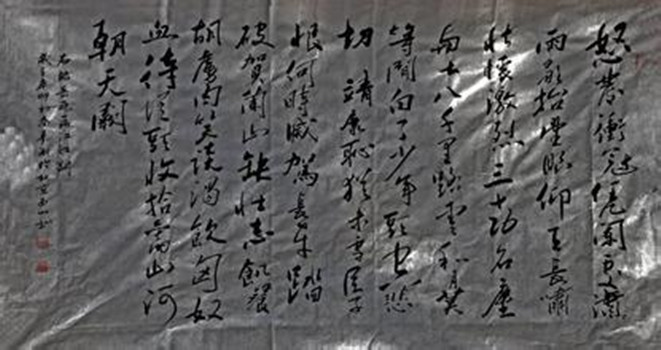 怒髮衝冠凭闌處瀟
雨歇抬望眼仰天長嘯
壯懷激烈三十功名塵
與土八千里路雲和月莫
等閒白了少年頭空悲
切靖康恥猶未雪臣子
恨何時滅駕長車踏
破賀蘭山缺壯志飢餐
胡虜肉笑談渴飲匈奴
血待從頭收拾舊山河
朝天闕
右錄岳飛滿江紅詞